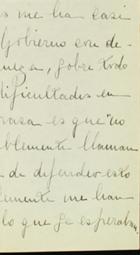 s me ha casi
Gobierno con de-
, sobre todo
dificultades en
casa es que "no
blemente llaman
de defender esto
mente me han
lo que se esperaban